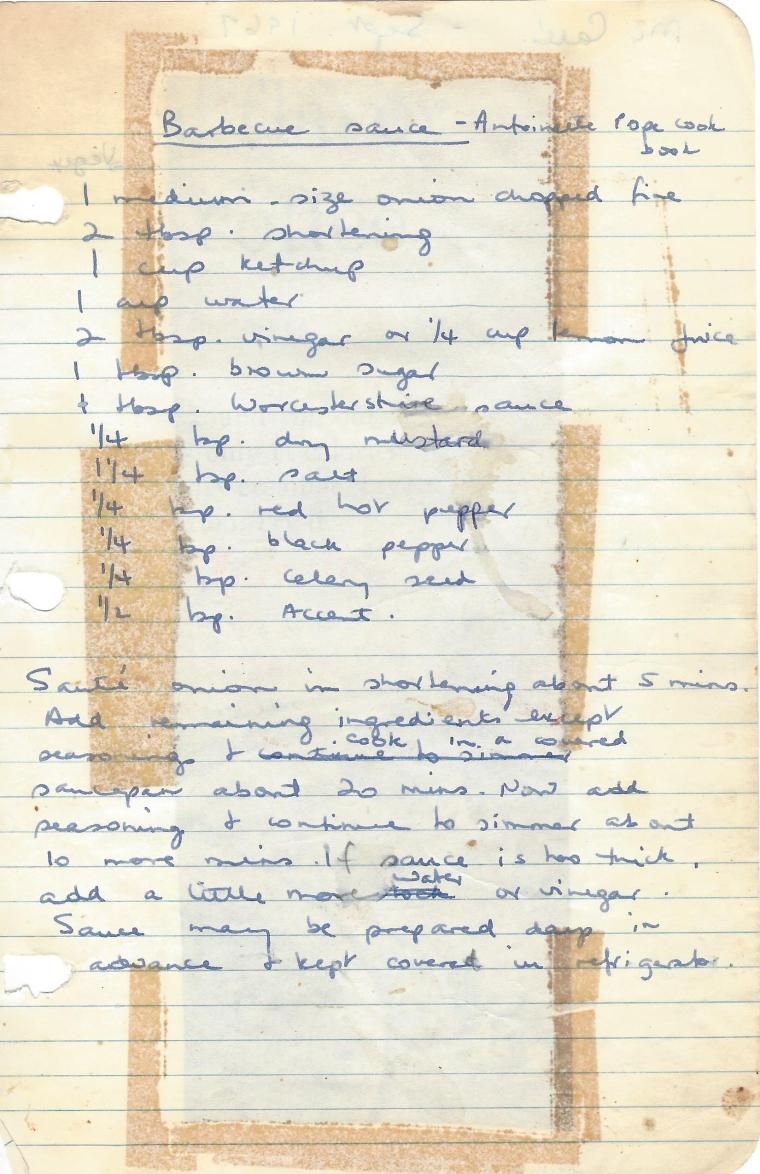 Mc Call - Sept. 1967
Barbecue sauce - Antoinette Pope cook
book
1 medium-size onion chopped fine
2 tbsp. shortening
1 cup ketchup
1 cup water
2 tbsp. vinegar or 1/4 cup lemon juice
1 tbsp. brown sugar
1 tbsp. Worcestershire sauce
1/4 tsp. dry mustard
1 1/4 tsp. salt
1/4 tsp. red hot pepper
1/4 tsp. black pepper
1/4 tsp. celery seed
1/2 tsp. Accent.
Sauté onion in shortening about 5 mins.
Add remaining ingredients except
seasonings & continue to simmer cook in a covered
saucepan about 20 mins. Now add
seasoning & continue to simmer about
10 more mins. If sauce is too thick,
add a little more water or vinegar.
Sauce may be prepared days in
advance & kept covered in refrigerator.